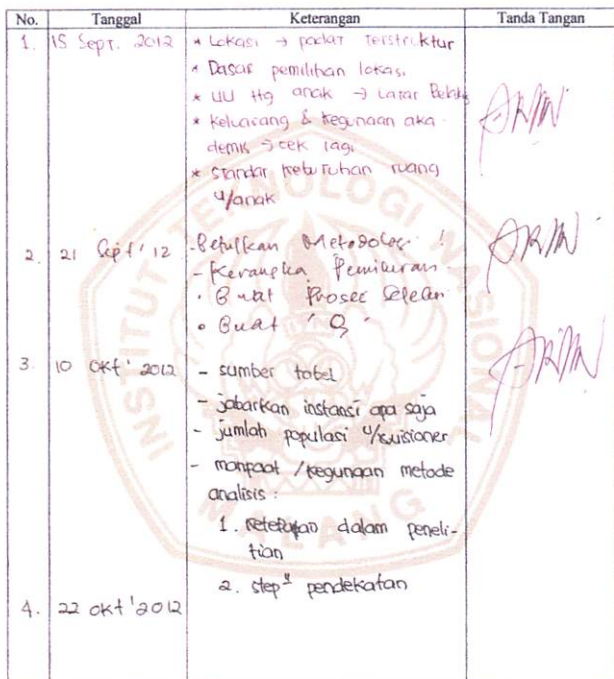 No. Tanggal Keterangan Tanda Tangan
1. 15 Sept. 2012 * Lokasi → padat terstruktur
* Dasar pemilihan lokasi
* UU ttg anak → Latar Belakg
* Keluarang & kegunaan aka
demis → cek lagi
* Standar kebutuhan ruang
u/anak
2. 21 Sept' 12 - Betulkan Metodologi !
- Kerangka Pemikiran
• Buat Proses
• Buat
3. 10 Okt' 2012 - sumber tabel
- jabarkan instansi apa saja
- jumlah populasi u/kuisioner
- manpaat / kegunaan metode
analisis :
1. dalam peneli-
tian
2. step" pendekatan
4. 22 okt '2012
INSTITUT TEKNOLOGI NASIONAL
MALANG